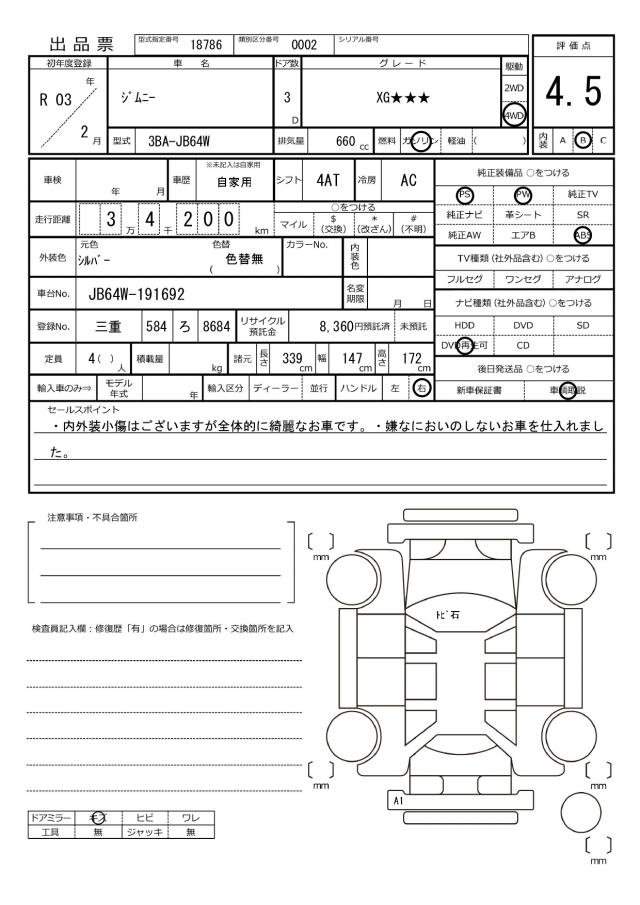 出品票
型式指定番号 18786 類別区分番号 0002 シリアル番号
初年度登録 車名 ドア数 グレード 駆動 評価点
R 03 年 2 月 ｼﾞﾑﾆｰ 3 D XG★★★ 2WD 4WD 4.5
型式 3BA-JB64W 排気量 660 cc 燃料 ガソリン 軽油 ( ) 内装 A B C
車検 年 月 車歴 ※未記入は自家用 自家用 シフト 4AT 冷房 AC
走行距離 3 万 4 千 2 0 0 km
○をつける
マイル $(交換) *(改ざん) #(不明)
外装色 元色 ｼﾙﾊﾞｰ 色替 ( 色替無 ) カラーNo. 内装色
車台No. JB64W-191692 名変期限 月 日
登録No. 三重 584 ろ 8684 リサイクル預託金 8,360円預託済 未預託
定員 4( )人 積載量 kg 諸元 長さ 339 cm 幅 147 cm 高さ 172 cm
輸入車のみ⇒ モデル年式 年 輸入区分 ディーラー 並行 ハンドル 左 右
純正装備品 ○をつける
PS PW 純正TV
純正ナビ 革シート SR
純正AW エアB ABS
TV種類(社外品含む) ○をつける
フルセグ ワンセグ アナログ
ナビ種類(社外品含む) ○をつける
HDD DVD SD
DVD再生可 CD
後日発送品 ○をつける
新車保証書 車輌取説
セールスポイント
・内外装小傷はございますが全体的に綺麗なお車です。・嫌なにおいのしないお車を仕入れまし
た。
注意事項・不具合箇所
検査員記入欄：修復歴「有」の場合は修復箇所・交換箇所を記入
mm
mm
ﾄﾋﾞ石
mm
mm
A1
mm
ドアミラー キズ ヒビ ワレ
工具 無 ジャッキ 無